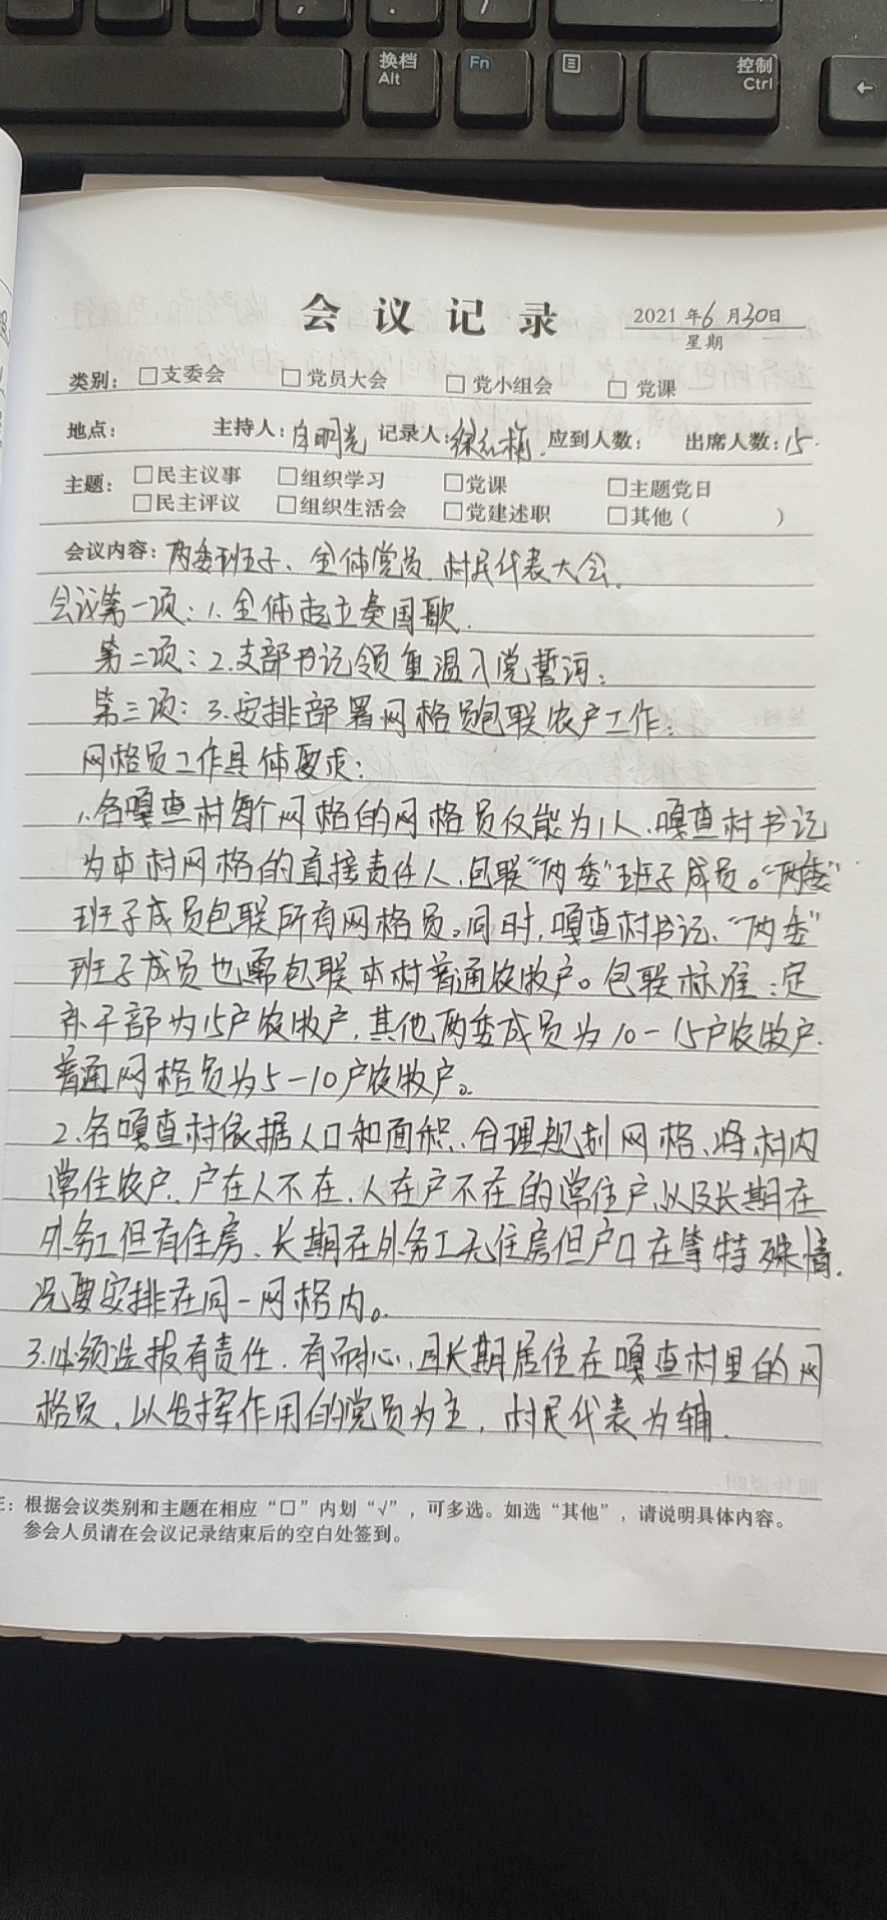 换档
Alt
Fn
控制
Ctrl
会议记录
2021年6月30日
星期
类别：□支委会 □党员大会 □党小组会 □党课
地点： 主持人：白明光 记录人：徐红梅 应到人数： 出席人数：15.
主题：□民主议事 □组织学习 □党课 □主题党日
□民主评议 □组织生活会 □党建述职 □其他（ ）
会议内容：两委班子、全体党员、村民代表大会.
会议第一项：1.全体起立奏国歌.
第二项：2.支部书记领重温入党誓词；
第三项：3.安排部署网格员包联农户工作；
网格员工作具体要求：
1.各嘎查村每个网格的网格员仅能为1人.嘎查村书记
为本村网格的直接责任人,包联“两委”班子成员。“两委”
班子成员包联所有网格员。同时,嘎查村书记、“两委”
班子成员也需包联本村普通农牧户。包联标准：定
补干部为15户农牧户,其他两委成员为10-15户农牧户.
普通网格员为5-10户农牧户。
2.各嘎查村依据人口和面积、合理规划网格、将村内
常住农户、户在人不在、人在户不在的常住户、以及长期在
外务工但有住房、长期在外务工无住房但户口在等特殊情
况要安排在同一网格内。
3.必须选拔有责任.有耐心、且长期居住在嘎查村里的网
格员,以发挥作用的党员为主,村民代表为辅.
：根据会议类别和主题在相应“□”内划“√”，可多选。如选“其他”，请说明具体内容。
参会人员请在会议记录结束后的空白处签到。